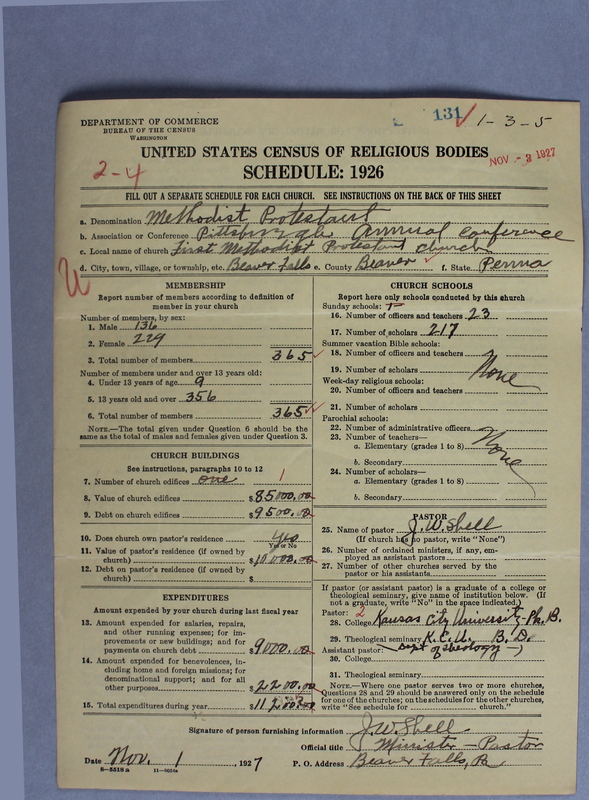 DEPARTMENT OF COMMERCE
BUREAU OF THE CENSUS
WASHINGTON
131 1-3-5
UNITED STATES CENSUS OF RELIGIOUS BODIES
NOV -3 1927
2-4
SCHEDULE: 1926
FILL OUT A SEPARATE SCHEDULE FOR EACH CHURCH. SEE INSTRUCTIONS ON THE BACK OF THIS SHEET
a. Denomination Methodist Protestant
b. Association or Conference Pittsburgh Annual Conference
c. Local name of church First Methodist Protestant Church
d. City, town, village, or township, etc. Beaver Falls e. County Beaver f. State Penna
U
MEMBERSHIP
Report number of members according to definition of
member in your church
Number of members, by sex:
1. Male 136
2. Female 229
3. Total number of members 365
Number of members under and over 13 years old:
4. Under 13 years of age 9
5. 13 years old and over 356
6. Total number of members 365
NOTE.—The total given under Question 6 should be
the same as the total of males and females given under Question 3.
CHURCH BUILDINGS
See instructions, paragraphs 10 to 12
7. Number of church edifices one 1
8. Value of church edifices $85000.00
9. Debt on church edifices $9500.00
10. Does church own pastor's residence Yes
Yes or No
11. Value of pastor's residence (if owned by
church) $10000.00
12. Debt on pastor's residence (if owned by
church) $
EXPENDITURES
Amount expended by your church during last fiscal year
13. Amount expended for salaries, repairs,
and other running expenses; for im-
provements or new buildings; and for
payments on church debt $9000.00
14. Amount expended for benevolences, in-
cluding home and foreign missions; for
denominational support; and for all
other purposes $2200.00
15. Total expenditures during year $11200.00
CHURCH SCHOOLS
Report here only schools conducted by this church
Sunday schools:
16. Number of officers and teachers 23
17. Number of scholars 217
Summer vacation Bible schools:
18. Number of officers and teachers
19. Number of scholars None
Week-day religious schools:
20. Number of officers and teachers
21. Number of scholars
Parochial schools:
22. Number of administrative officers
23. Number of teachers— None
a. Elementary (grades 1 to 8)
b. Secondary
24. Number of scholars—
a. Elementary (grades 1 to 8)
b. Secondary
PASTOR
25. Name of pastor J. W. Shell
(If church has no pastor, write "None")
26. Number of ordained ministers, if any, em-
ployed as assistant pastors
27. Number of other churches served by the
pastor or his assistants
If pastor (or assistant pastor) is a graduate of a college or
theological seminary, give name of institution below. (If
not a graduate, write "No" in the space indicated.)
Pastor: 2
28. College Kansas City University - Ph. B.
29. Theological seminary K.C.U. B.D.
Assistant pastor: Dept of theology
30. College
31. Theological seminary
NOTE.—Where one pastor serves two or more churches,
Questions 28 and 29 should be answered only on the schedule
for one of the churches; on the schedules for the other churches,
write "See schedule for church."
Signature of person furnishing information J. W. Shell
Official title Minister - Pastor
Date Nov. 1, 1927 P. O. Address Beaver Falls, Pa